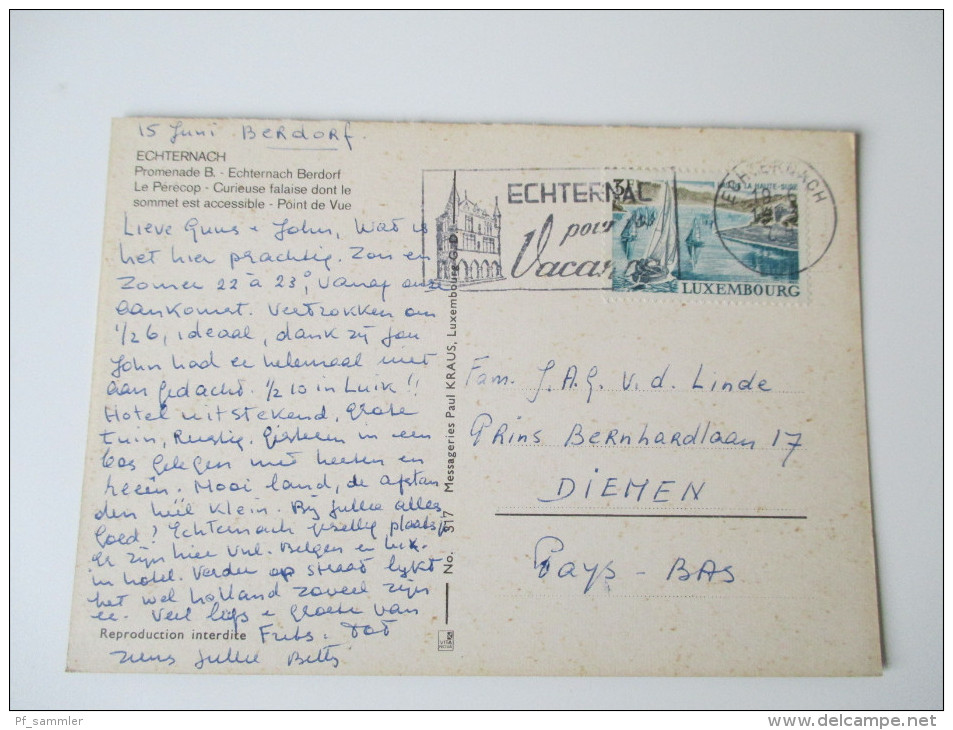 15 Juni Berdorf.
ECHTERNACH
Promenade B. - Echternach Berdorf
Le Pérécop - Curieuse falaise dont le
sommet est accessible - Point de Vue
Lieve Guus + John, Wat is
het hier prachtig. Zon en
Zomer 22 à 23°, vanaf onze
aankomst. Vertrokken om
1/2 6, ideaal, dank zij Jan
John had er helemaal niet
aan gedacht. 1/2 10 in Luik!!
Hotel uitstekend, grote
tuin, Rustig. Gisteren in een
bos gelegen met heeten en
reeën. Mooi land, de afstan
den heel klein. Bij jullie alles
goed? Echternach gezellig plaatsje
Er zijn hier vnl. Belgen en Lux.
in hotel. Verder op straat lijkt
het wel Holland zoveel zijn
er. Veel liefs + groeten van
Reproduction interdite
Frits. Tot
ziens jullie Bets
No. 317 Messageries Paul KRAUS, Luxembourg G.D.
ECHTERNAC
pour
Vacan
3F
LA HAUTE-SURE
LUXEMBOURG
ECHTERNACH
Fam. J.A.G. v.d. Linde
Prins Bernhardlaan 17
DIEMEN
Pays - BAS
Pf_sammler
www.delcampe.net